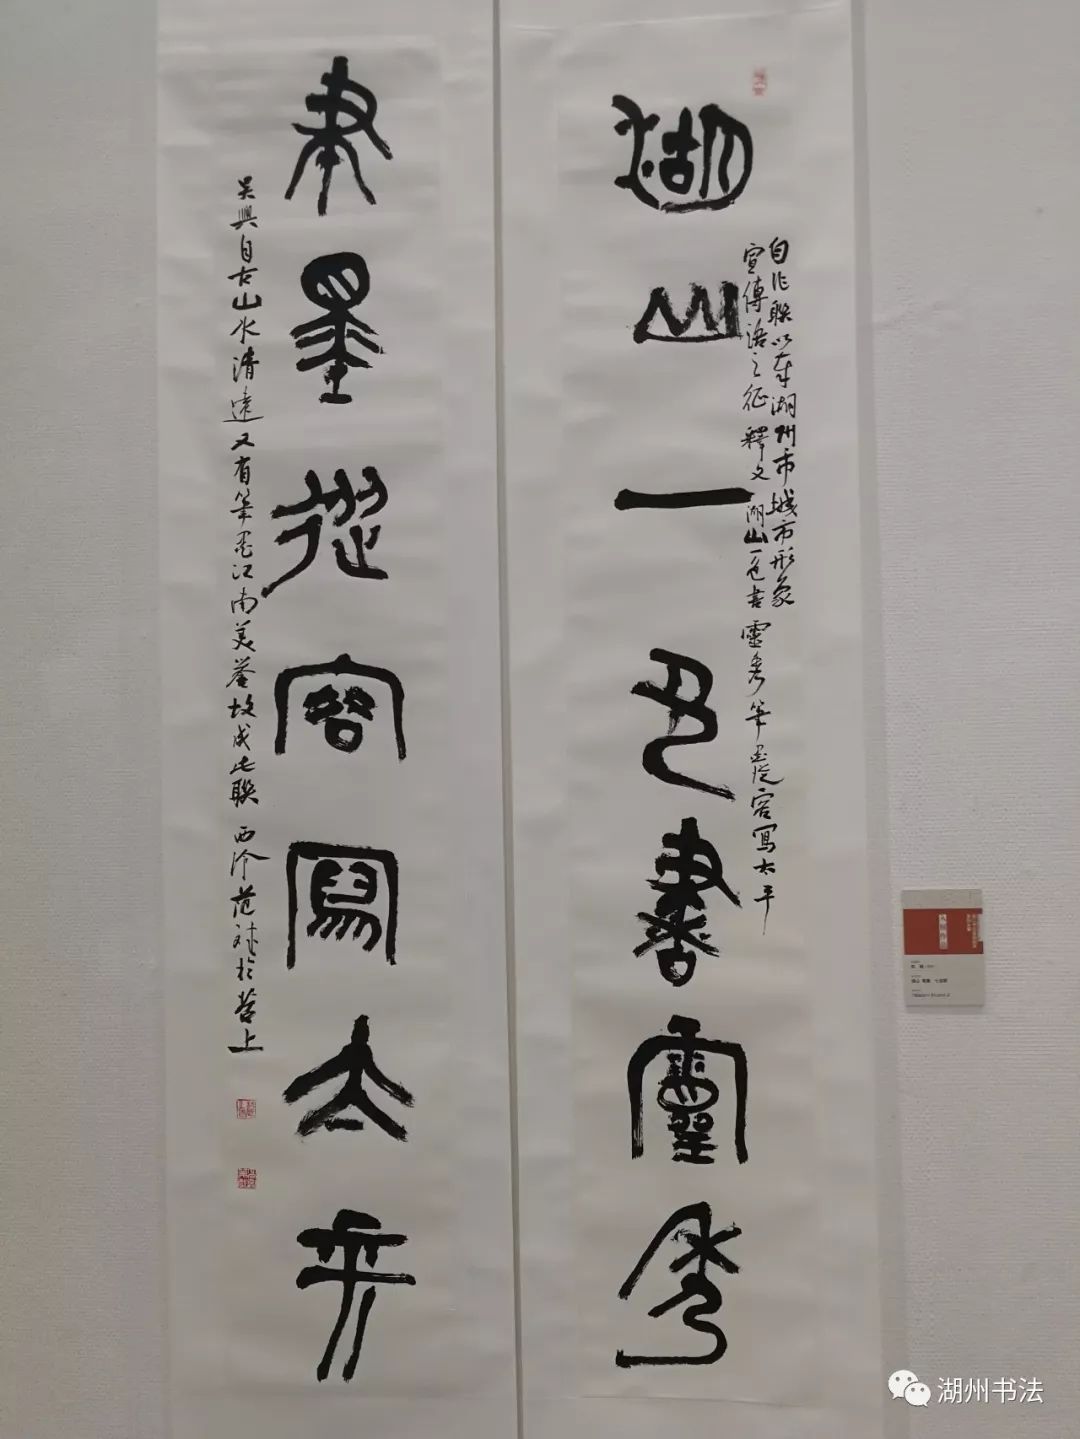 湖山一色書靈秀
自作聯以奉湖州市城市形象
宣傳語之征 釋文 湖山一色書靈秀 筆墨從容寫太平
筆墨從容寫太平
吳興自古山水清遠又有筆墨江南美譽故成此聯 西泠范斌於苕上
湖州书法